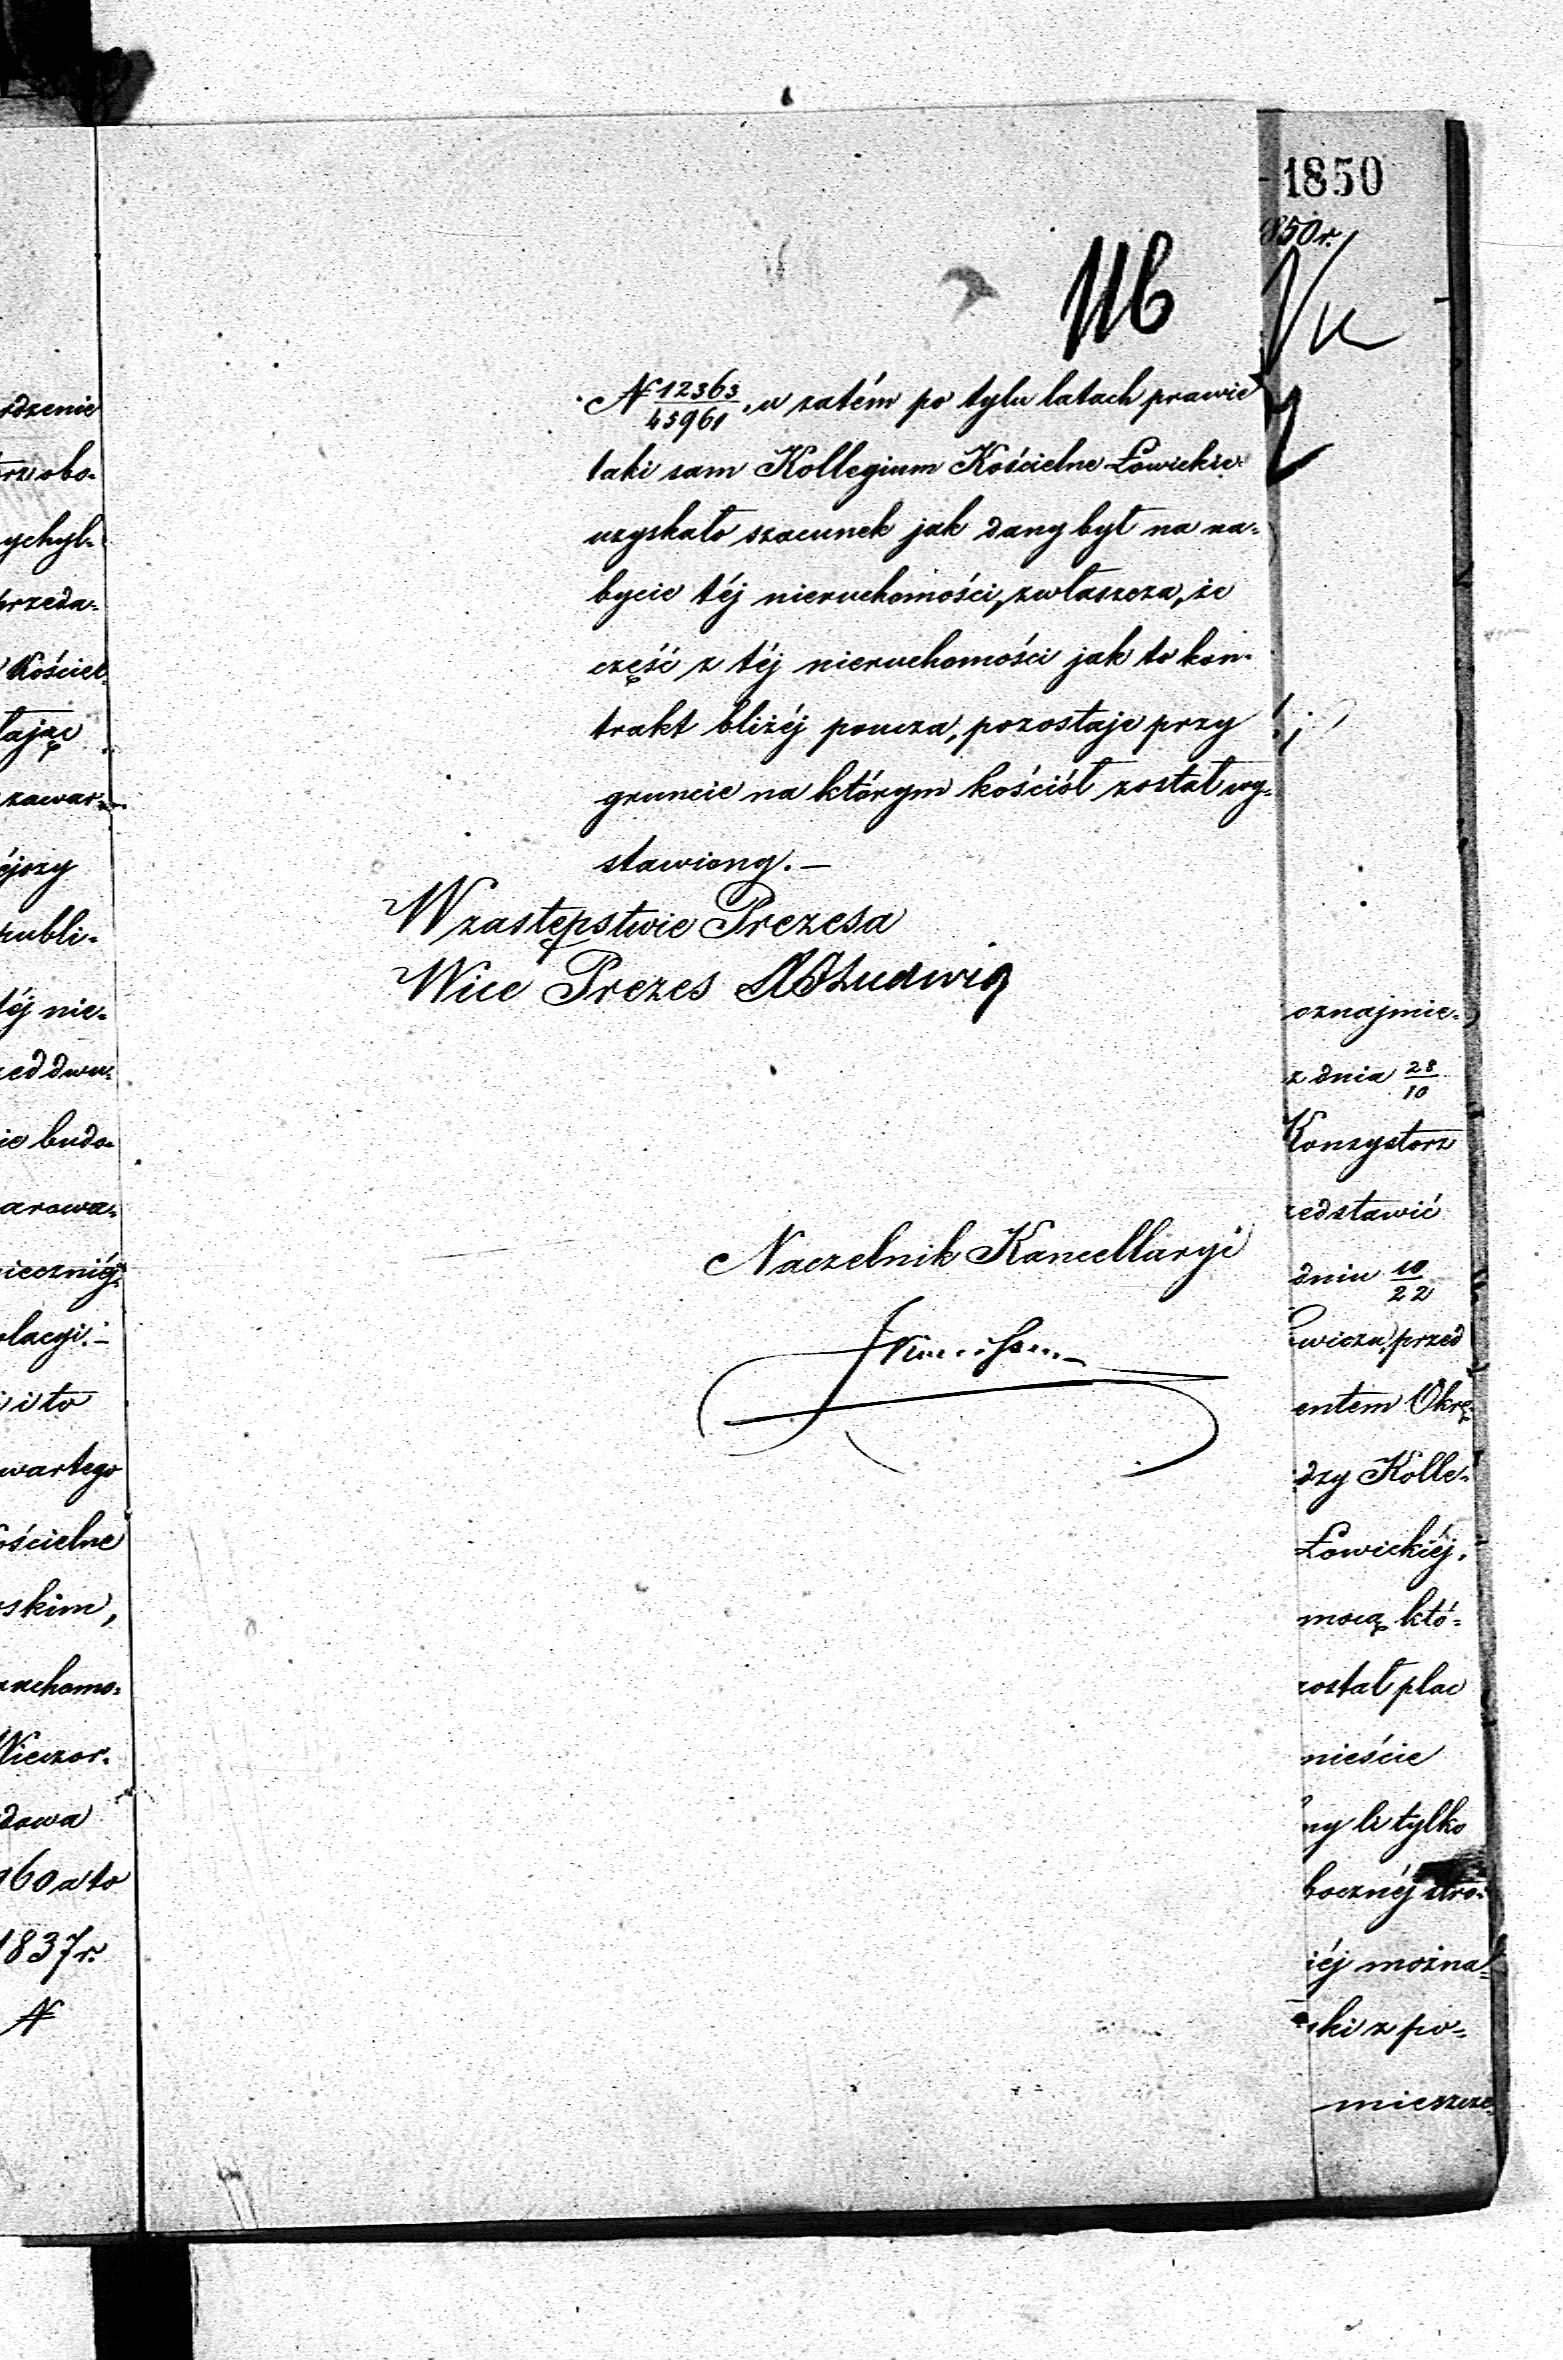 116
N 12363/45961, a zatém po tylu latach prawie
taki sam Kollegium Kościelne Łowickie
uzyskało szacunek jak dany był na na=
bycie téj nieruchomości, zwłaszcza, że
część z téj nieruchomości jak to kon=
trakt bliżéj poucza, pozostaje przy
gruncie na którym kościół został wy=
stawiony.—
W zastępstwie Prezesa
Wice Prezes Ludwig
Naczelnik Kancellaryi
rdzenie
rz obo=
ychyl=
przeda=
Kościel=
łając
zawar=
éjszy
publi=
téj nie=
zed dwu=
ie budo=
arowa=
iecznié
lacyi.—
i to
wartego
ościelne
skim,
ruchomo=
Wieczor=
dowa
60 a to
1837 r.
N
1850
850 r.
oznajmie=
z dnia 28/10
Konsystorz
zedstawić
dniu 10/22
wiczu, przed
entem Okrę=
dzy Kolle=
Łowickiéj,
mocą któ=
został plac
mieście
ny li tylko
bocznéj stro=
iéj można=
ski z po=
mieszcze